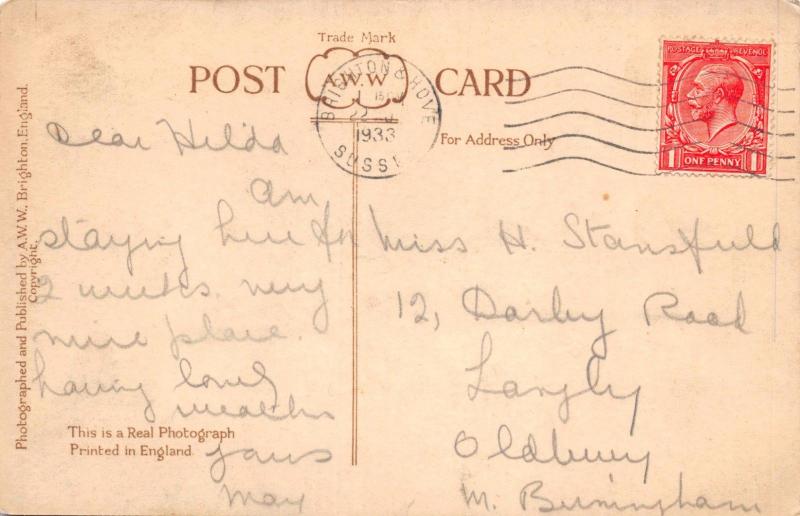 Trade Mark
POST CARD
A.W.W
BRIGHTON & HOVE
1933
SUSSEX
For Address Only
POSTAGE REVENUE
1 ONE PENNY 1
Photographed and Published by A.W.W., Brighton, England.
Copyright.
Dear Hilda
Am
staying here for
2 weeks. very
nice place.
having lovely
weather
yours
May
This is a Real Photograph
Printed in England.
Miss H. Stansfield
12, Darby Road
Langly
Oldbury
Birmingham